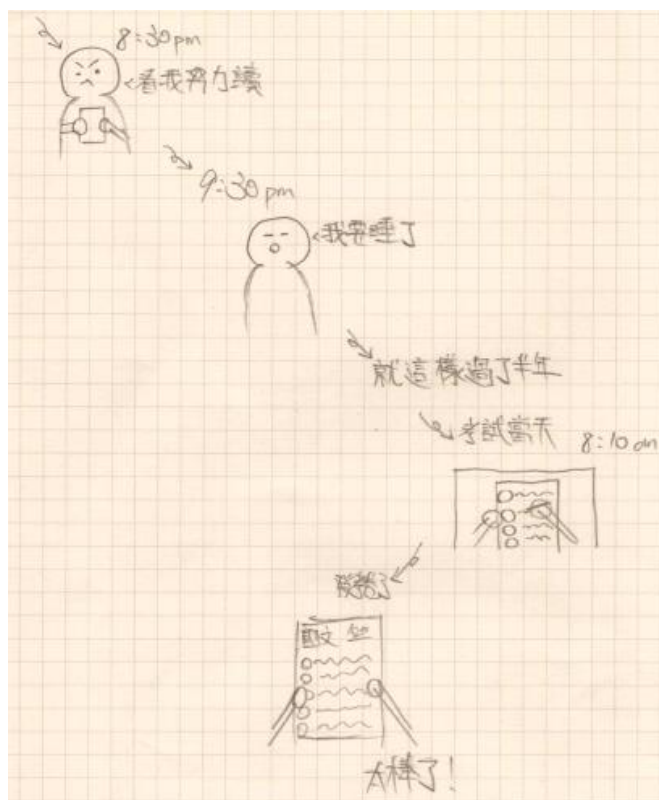 8:30pm
看我努力讀
9:30pm
我要睡了
就這樣過了半年
考試當天 8:10am
發
太棒了!